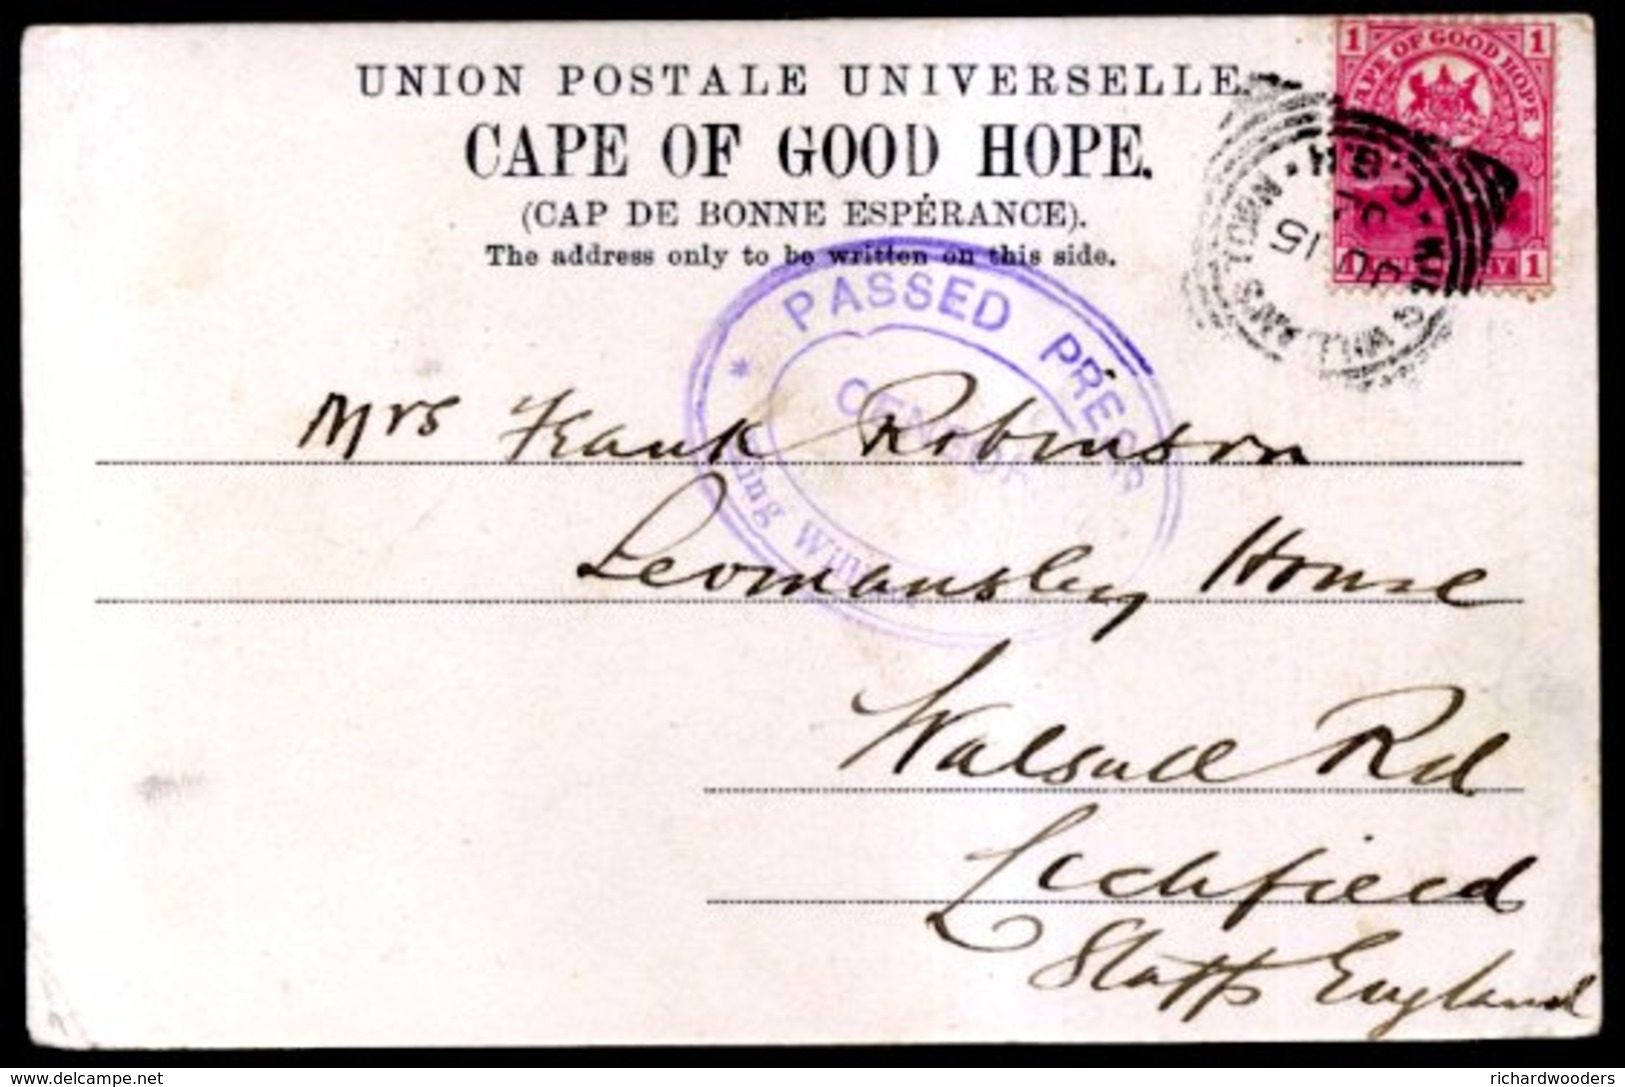 UNION POSTALE UNIVERSELLE.
CAPE OF GOOD HOPE.
(CAP DE BONNE ESPÉRANCE).
The address only to be written on this side.
1 CAPE OF GOOD HOPE 1
1 1
KING WILLIAM'S TOWN
C.G.H.
15
* PASSED PRESS
CENSOR
King William
Mrs Frank Robinson
Leomansley House
Walsall Rd
Lichfield
Staffs England
delcampe.net
richardwooders